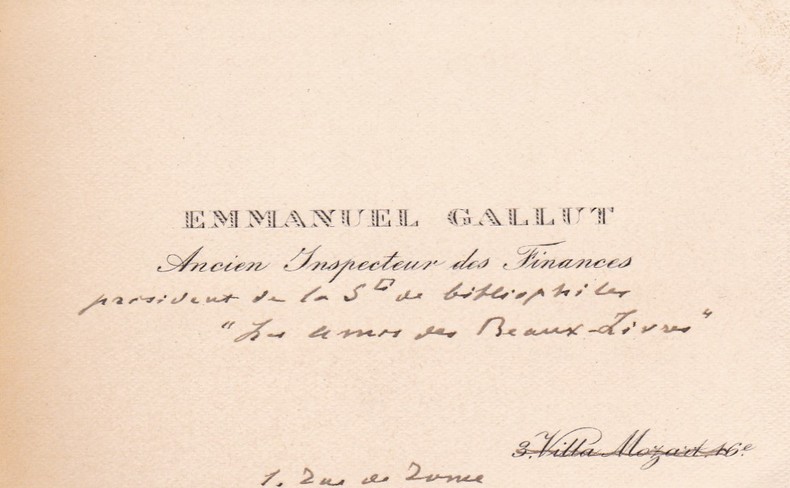 EMMANUEL GALLUT
Ancien Inspecteur des Finances
président de la Sté de bibliophiles
"Les amis des Beaux-Livres"
3. Villa Mozart. 16e
1, Rue de Rome